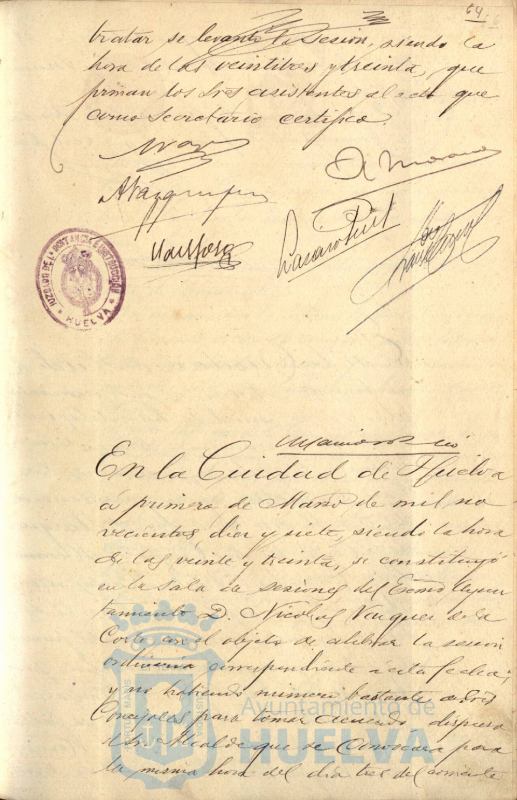 64
tratar se levantó la Sesion, siendo la
hora de las veintitres y treinta, que
firman los Sres asistentes al acto que
como Secretario certifico.
A Vazquez
JUZGADO DE 1ª INSTANCIA E INSTRUCCION
* HUELVA *
En la Ciudad de Huelva
a primero de Marzo de mil no
vecientos diez y siete, siendo la hora
de las veinte y treinta, se constituyó
en la sala de sesiones del Excmo Ayun
tamiento D. Nicolas Vazquez de la
Corte con el objeto de celebrar la sesion
ordinaria correspondiente á esta fecha;
y no habiendo número bastante de Sres
Concejales para tomar acuerdo dispuso
el Sr Alcalde que se convocara para
la misma hora del dia tres del corriente
Ayuntamiento de
HUELVA